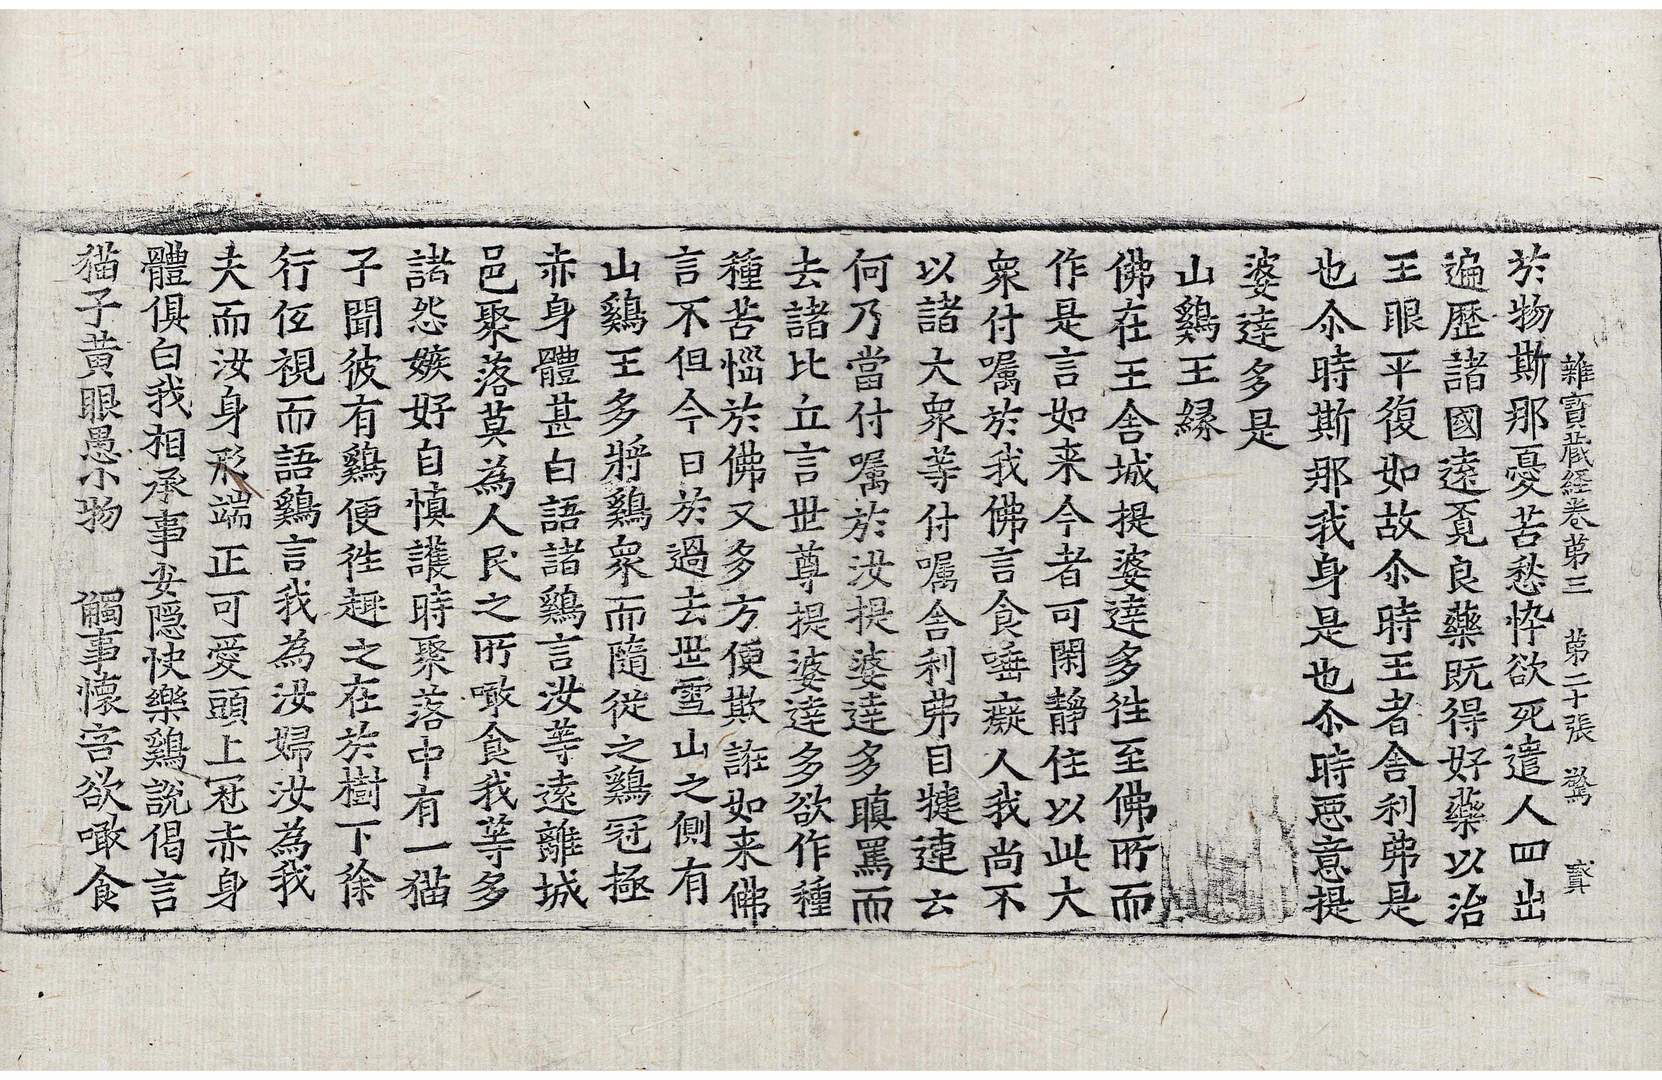 雜寶藏経卷苐三 苐二十張 驚
於物斯那憂苦愁悴欲死遣人四出
遍歷諸國遠覓良藥旣得好藥以治
王眼平復如故尒時王者舍利弗是
也尒時斯那我身是也尒時惡意提
婆達多是
山鷄王緣
佛在王舍城提婆達多往至佛所而
作是言如来今者可閑靜住以此大
衆付嘱於我佛言食唾癡人我尚不
以諸大衆等付嘱舍利弗目揵連云
何乃當付嘱於汝提婆達多瞋罵而
去諸比丘言世尊提婆達多欲作種
種苦惱於佛又多方便欺誑如来佛
言不但今日於過去世雪山之側有
山鷄王多將鷄衆而隨從之鷄冠極
赤身體甚白語諸鷄言汝等遠離城
邑聚落莫為人民之所噉食我等多
諸怨嫉好自慎護時聚落中有一猫
子聞彼有鷄便往趣之在於樹下徐
行伍視而語鷄言我為汝婦汝為我
夫而汝身形端正可愛頭上冠赤身
體俱白我相承事安隱快樂鷄說偈言
猫子黃眼愚小物 觸事懷害欲噉食